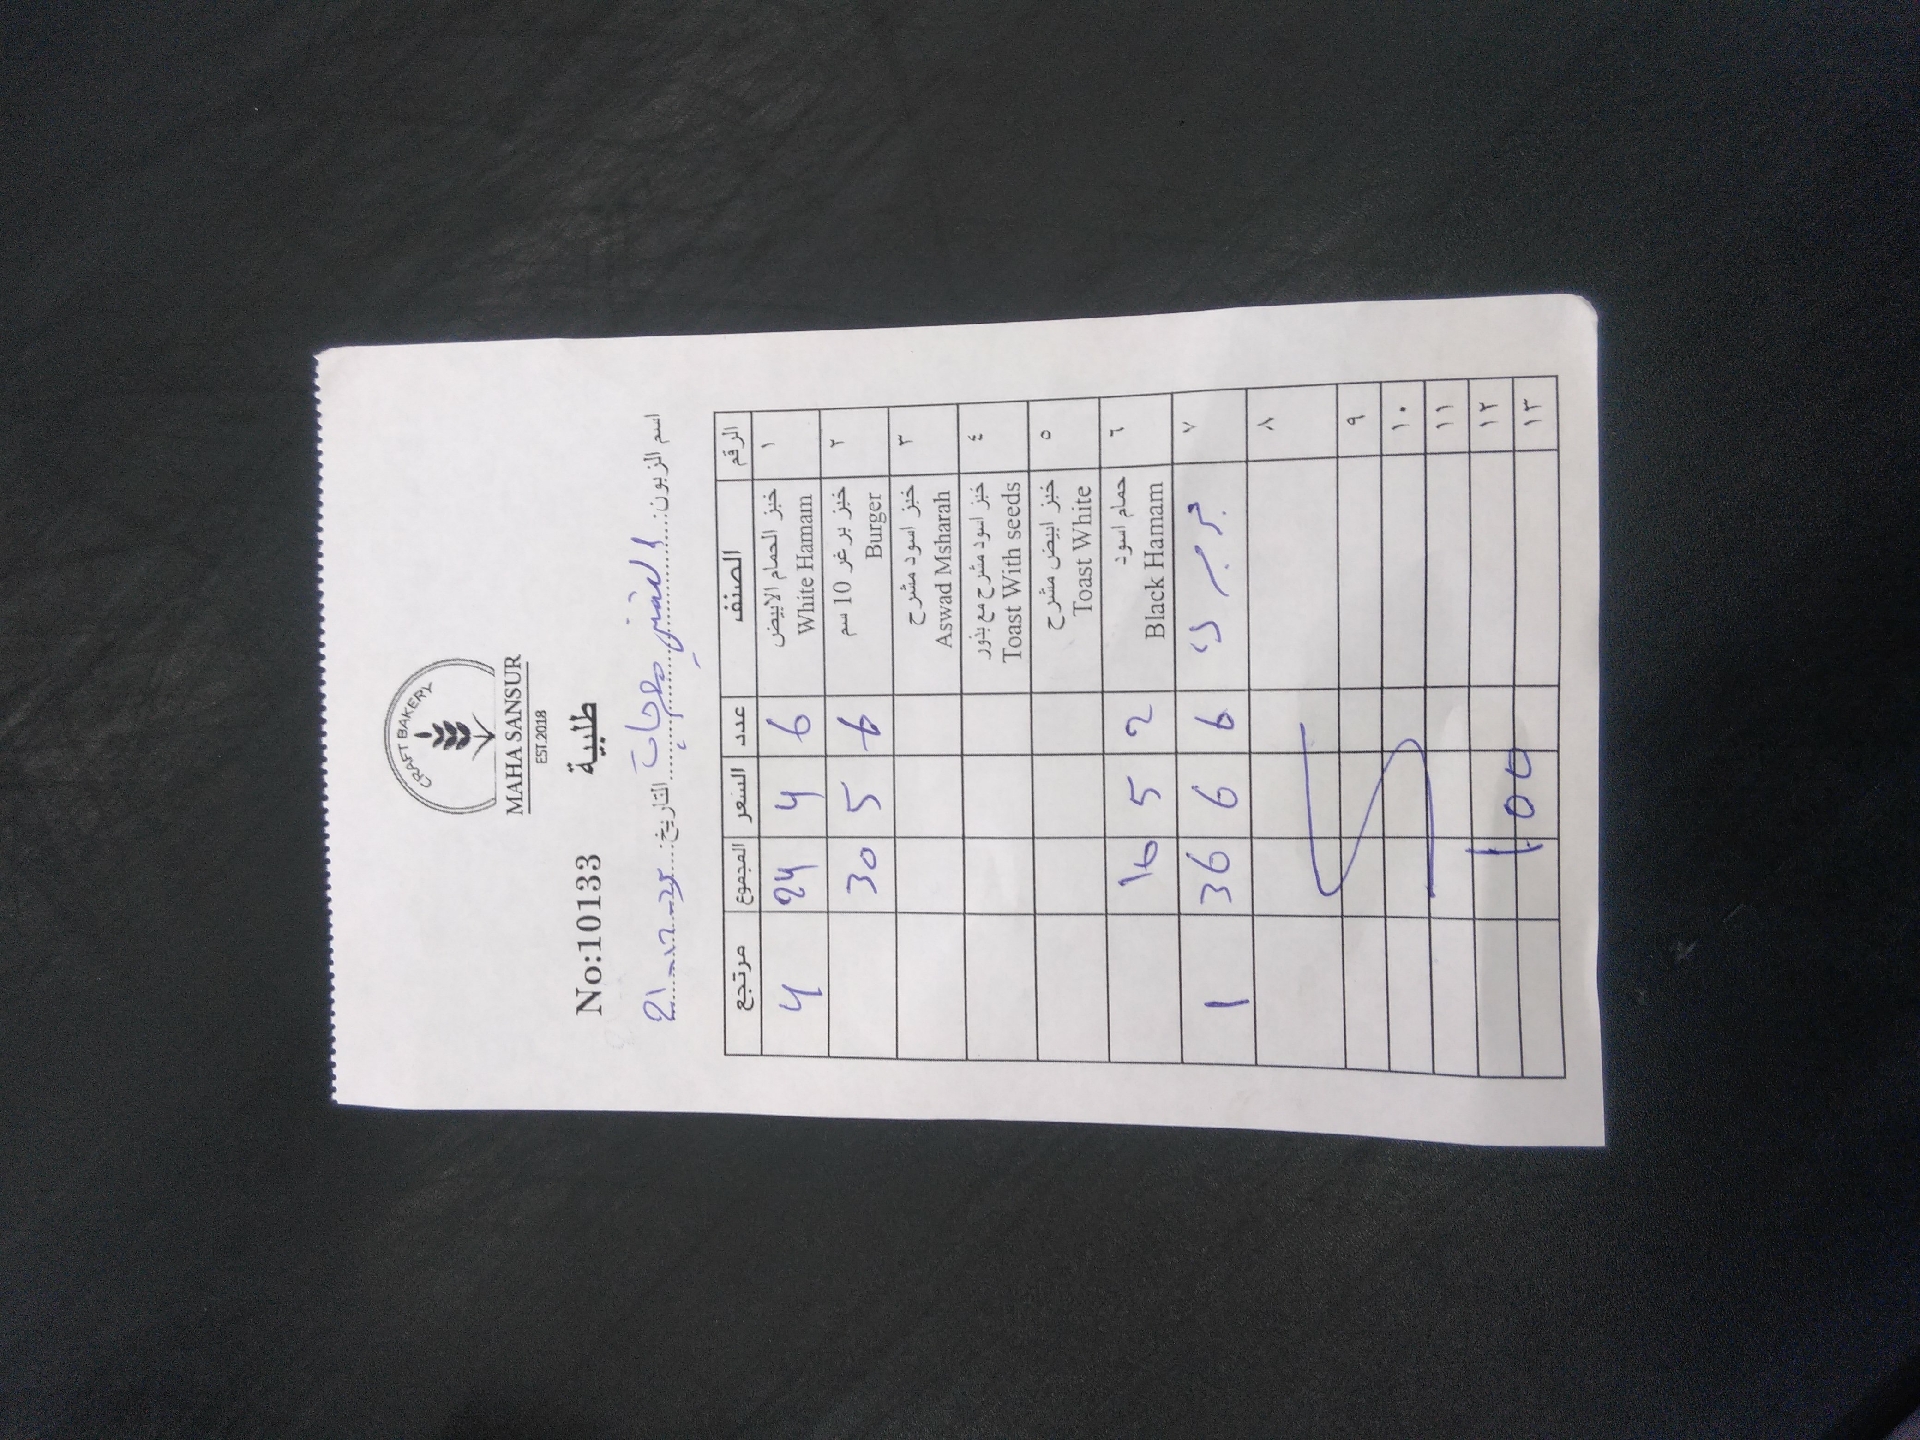 CRAFT BAKERY
MAHA SANSUR
EST.2018
No:10133 طلبية
اسم الزبون: التاريخ:
الرقم الصنف عدد السعر المجموع مرتجع
١ خبز الحمام الابيض White Hamam 6 4 24 4
٢ خبز برغر 10 سم Burger 6 5 30
٣ خبز اسود مشرح Aswad Msharah
٤ خبز اسود مشرح مع بذور Toast With seeds
٥ خبز ابيض مشرح Toast White
٦ حمام اسود Black Hamam 2 5 10
٧ 6 6 36 1
٨
٩
١٠
١١
١٢
١٣ 100